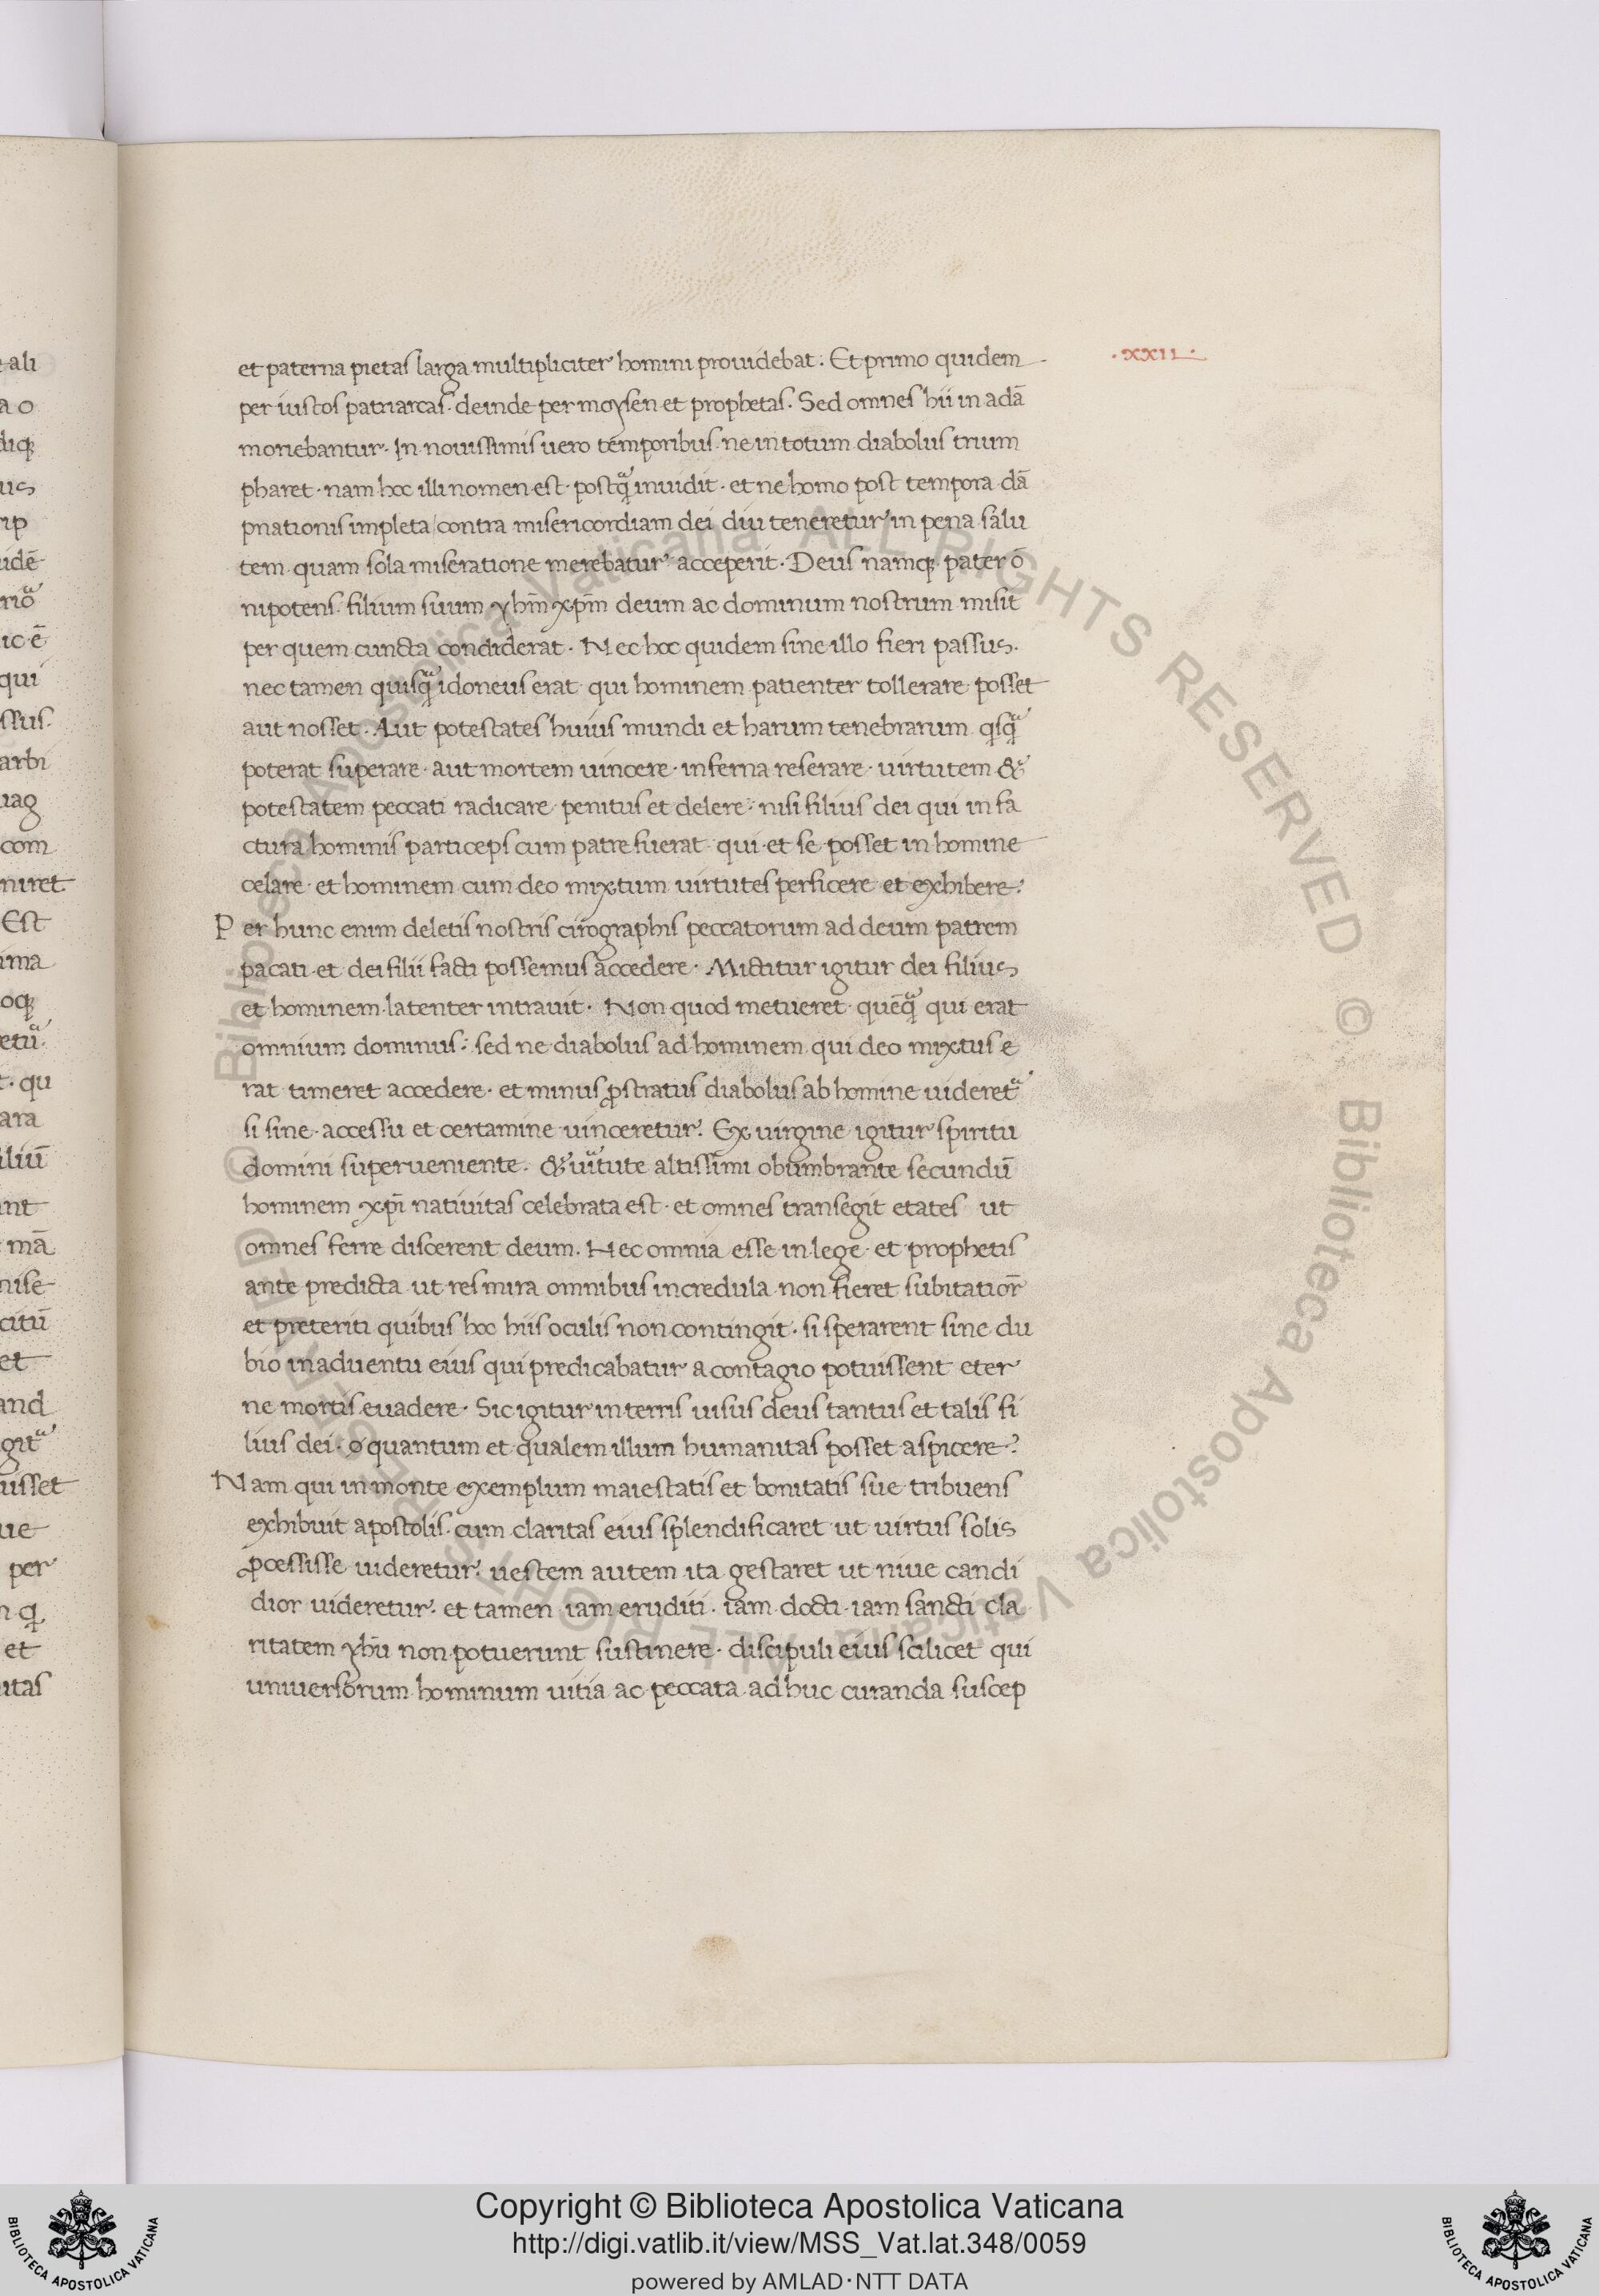 et paterna pietas larga multipliciter homini prouidebat. Et primo quidem
·XXII·
per iustos patriarcas. deinde per moysen et prophetas. Sed omnes hii in adā
moriebantur. In nouissimis uero temporibus. ne in totum diabolus trium
pharet. nam hoc illi nomen est. postq̃ inuidit. et ne homo post tempora dā
pnationis impleta contra misericordiam dei diu teneretur in pena salu
tem quam sola miseratione merebatur acceperit. Deus namq; pater ō
nipotens. filium suum yhm̄ xpm̄ deum ac dominum nostrum misit
per quem cuncta condiderat. Nec hoc quidem sine illo fieri passus.
nec tamen quisq̃ idoneus erat qui hominem patienter tollerare posset
aut nosset. Aut potestates huius mundi et harum tenebrarum qsq̃
poterat superare. aut mortem uincere. inferna reserare. uirtutem &
potestatem peccati radicare penitus et delere. nisi filius dei qui in fa
ctura hominis particeps cum patre fuerat qui et se posset in homine
celare. et hominem cum deo mixtum uirtutes perficere et exhibere.
Per hunc enim deletis nostris cirographis peccatorum ad deum patrem
pacati et dei filii facti possemus accedere. Mictitur igitur dei filius
et hominem latenter intrauit. Non quod metueret quēq̃ qui erat
omnium dominus: sed ne diabolus ad hominem qui deo mixtus e
rat timeret accedere. et minus ꝓstratus diabolus ab homine uideret᷑
si sine accessu et certamine uinceretur. Ex uirgine igitur spiritu
domini superueniente. & uītute altissimi obumbrante secundū
hominem xpī natiuitas celebrata est. et omnes transegit etates ut
omnes ferre discerent deum. Nec omnia esse in lege et prophetis
ante predicta ut res mira omnibus incredula non fieret subitatior̄
et preteriti quibus hoc hiis oculis non contingit. si sperarent sine du
bio in aduentu eius qui predicabatur a contagio potuissent eter
ne mortis euadere. Sic igitur in terris uisus deus tantus et talis fi
lius dei. o quantum et qualem illum humanitas posset aspicere?
Nam qui in monte exemplum maiestatis et bonitatis sue tribuens
exhibuit apostolis. cum claritas eius splendificaret ut uirtus solis
ꝓcessisse uideretur. uestem autem ita gestaret ut niue candi
dior uideretur. et tamen iam eruditi. iam docti. iam sancti cla
ritatem yhū non potuerunt sustinere. discipuli eius scilicet qui
uniuersorum hominum uitia ac peccata adhuc curanda suscep
Copyright © Biblioteca Apostolica Vaticana
http://digi.vatlib.it/view/MSS_Vat.lat.348/0059
powered by AMLAD·NTT DATA